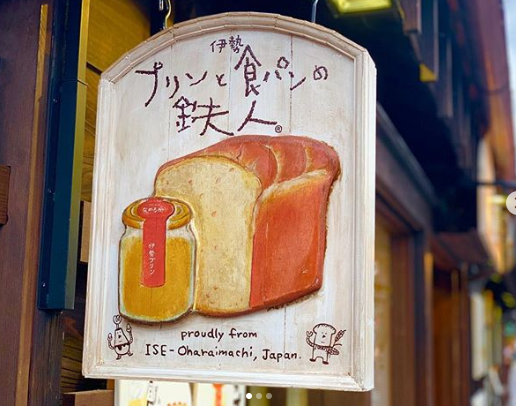 伊勢
プリンと食パンの
鉄人®
なめらか
伊勢プリン
proudly from
ISE-Oharaimachi, Japan.